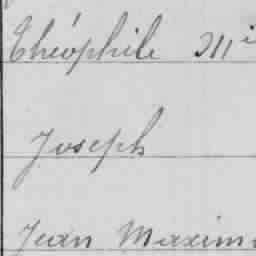 Théophile Mi
Joseph
Jean Maxim